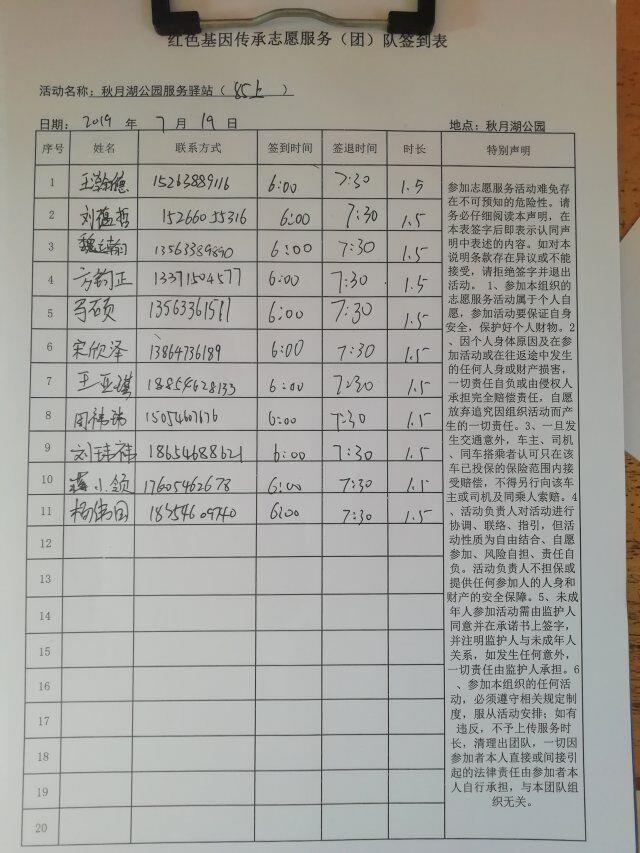 红色基因传承志愿服务（团）队签到表
活动名称：秋月湖公园服务驿站（85上）
日期：2019 年 7 月 19 日 地点：秋月湖公园
序号 姓名 联系方式 签到时间 签退时间 时长 特别声明
1 王瀚德 15263889116 6:00 7:30 1.5
2 刘蕴哲 15266055316 6:00 7:30 1.5
3 13563389890 6:00 7:30 1.5
4 方韵正 13371504577 6:00 7:30 1.5
5 马硕 6:00 7:30 1.5
6 宋欣泽 13864736189 6:00 7:30 1.5
7 王亚琪 18854628133 6:00 7:30 1.5
8 周祎玮 15054607676 6:00 7:30 1.5
9 刘珪祥 18654688621 6:00 7:30 1.5
10 小领 17605462678 6:00 7:30 1.5
11 杨伟国 6:00 7:30 1.5
12
13
14
15
16
17
18
19
20
参加志愿服务活动难免存
在不可预知的危险性。请
务必仔细阅读本声明，在
本表签字后即表示认同声
明中表述的内容。如对本
说明条款存在异议或不能
接受，请拒绝签字并退出
活动。 1、参加本组织的
志愿服务活动属于个人自
愿，参加活动要保证自身
安全，保护好个人财物。2
、因个人身体原因及在参
加活动或在往返途中发生
的任何人身或财产损害，
一切责任自负或由侵权人
承担完全赔偿责任，自愿
放弃追究因组织活动而产
生的一切责任。3、一旦发
生交通意外，车主、司机、
同车搭乘者认可只在该
车已投保的保险范围内接
受赔偿，不得另行向该车
主或司机及同乘人索赔。4
、活动负责人对活动进行
协调、联络、指引，但活
动性质为自由结合、自愿
参加、风险自担、责任自
负。活动负责人不担保或
提供任何参加人的人身和
财产的安全保障。5、未成
年人参加活动需由监护人
同意并在承诺书上签字，
并注明监护人与未成年人
关系，如发生任何意外，
一切责任由监护人承担。6
、参加本组织的任何活
动，必须遵守相关规定制
度，服从活动安排；如有
违反，不予上传服务时
长，清理出团队，一切因
参加者本人直接或间接引
起的法律责任由参加者本
人自行承担，与本团队组
织无关。